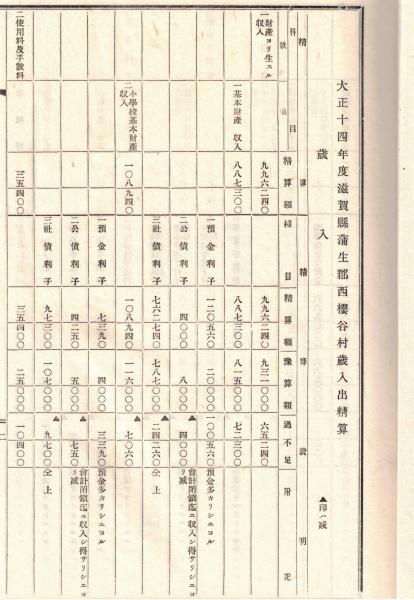 大正十四年度滋賀縣蒲生郡西櫻谷村歲入出精算
歲入
▲印ハ減
精算
科目
款
項
目
精算額
種目
精算額
豫算額
過不足
說明
附記
一財產ヨリ生スル收入
九九六二四〇
九九六二四〇
九三一〇〇〇
六五二四〇
一基本財產收入
八八七三〇〇
八八七三〇〇
八一五〇〇〇
七二三〇〇
一預金利子
一二〇五六〇
二〇〇〇〇
一〇〇五六〇
預金多カリシニヨル
二公債利子
四〇〇〇
八〇〇〇
▲四〇〇〇
會計閉鎖迄ニ收入シ得サリシニヨリ減
三社債利子
七六二七四〇
七八七〇〇〇
▲二四二六〇
仝上
二小學校基本財產收入
一〇八九四〇
一〇八九四〇
一一六〇〇〇
▲七〇六〇
一預金利子
七三九〇
四〇〇〇
三三九〇
預金多カリシニヨル
二公債利子
四二五〇
五〇〇〇
▲七五〇
會計閉鎖迄ニ收入シ得サリシニヨリ減
三社債利子
九七三〇〇
一〇七〇〇〇
▲九七〇〇
仝上
二使用料及手數料
三五四〇〇
三五四〇〇
二五〇〇〇
一〇四〇〇